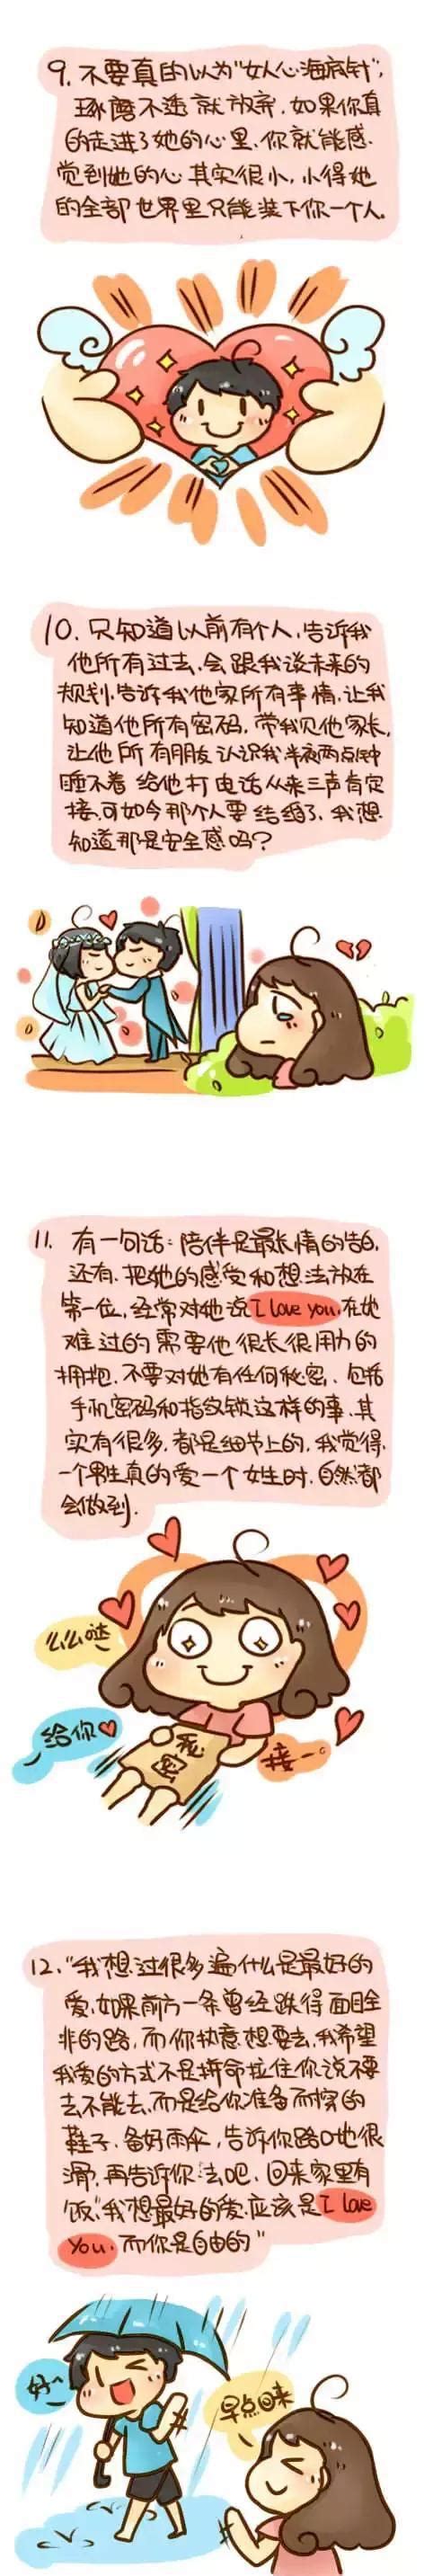 9. 不要真的以为"女人心海底针",
琢磨不透就放弃. 如果你真
的走进了她的心里. 你就能感
觉到她的心其实很小. 小得她
的全部世界里只能装下你一个人.
10. 只知道以前有个人, 告诉我
他所有过去. 会跟我谈未来的
规划. 告诉我他家所有事情. 让我
知道他所有密码. 带我见他家长.
让他所有朋友认识我. 半夜两点钟
睡不着给他打电话从来三声肯定
接. 可如今那个人要结婚了. 我想
知道那是安全感吗?
11. 有一句话: 陪伴是最长情的告白.
还有. 把她的感受和想法放在
第一位. 经常对她说I love you. 在她
难过的需要他很长很用力的
拥抱. 不要对她有任何秘密. 包括
手机密码和指纹锁这样的事. 其
实有很多. 都是细节上的. 我觉得
一个男生真的爱一个女生时. 自然都
会做到.
么么哒
给你
接一。
12. "我想过很多遍什么是最好的
爱. 如果前方一条曾经跌得面目全
非的路. 而你执意想要去. 我希望
我爱的方式不是拼命拉住你说不要
去不能去. 而是给你准备耐穿的
鞋子. 备好雨伞, 告诉你路口地很
滑. 再告诉你: 去吧. 回来家里有
饭." 我想最好的爱. 应该是I love
you. 而你是自由的"
好~
早点回来